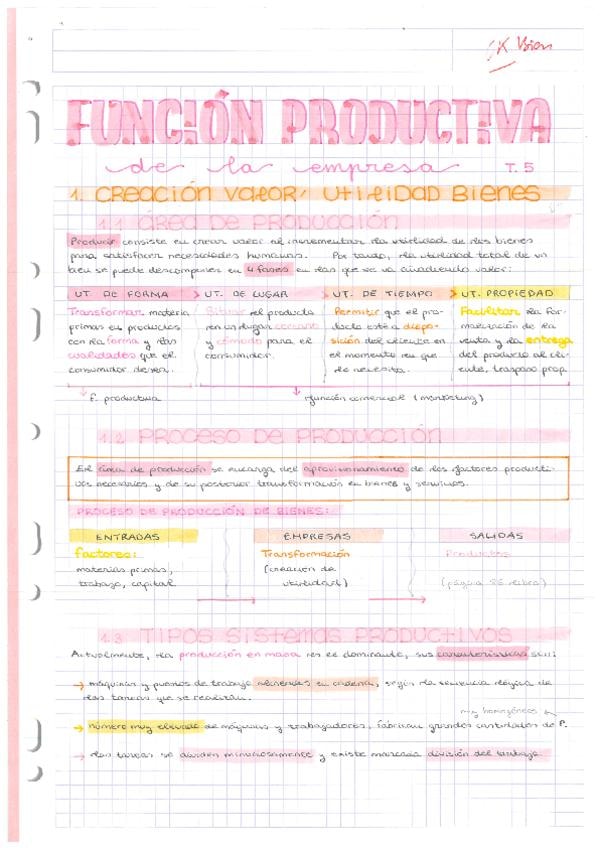 Bien
FUNCIÓN PRODUCTIVA
de la empresa T.5
1. CREACIÓN VALOR: UTILIDAD BIENES
1.1 ÁREA DE PRODUCCIÓN
Producir consiste en crear valor al incrementar la utilidad de los bienes
para satisfacer necesidades humanas. Por tanto, la utilidad total de un
bien se puede descomponer en 4 fases en las que se va añadiendo valor:
UT. DE FORMA > UT. DE LUGAR > UT. DE TIEMPO > UT. PROPIEDAD
Transformar materia
primas en productos
con la forma y las
cualidades que el
consumidor desea.
Situar el producto
en un lugar cercano
y cómodo para el
consumidor.
Permitir que el pro-
ducto esté a dispo-
sición del cliente en
el momento en que
lo necesita.
Facilitar la for-
malización de la
venta y la entrega
del producto al cli-
ente, traspaso prop.
↓ F. productiva
↓ función comercial (marketing)
1.2 PROCESO DE PRODUCCIÓN
El área de producción se encarga del aprovisionamiento de los factores producti-
vos necesarios y de su posterior transformación en bienes y servicios.
PROCESO DE PRODUCCIÓN DE BIENES:
ENTRADAS EMPRESAS SALIDAS
factores:
materias primas,
trabajo, capital
Transformación
(creación de
utilidad)
Productos
(página 86 libro)
1.3 TIPOS SISTEMAS PRODUCTIVOS
Actualmente, la producción en masa es dominante, sus características son:
→ máquinas y puestos de trabajo en cadena, según la secuencia lógica de
las tareas que se realizan.
muy homogéneos
→ número muy elevado de máquinas y trabajadores, fabrican grandes cantidades de P.
→ las tareas se dividen minuciosamente y existe marcada división del trabajo.